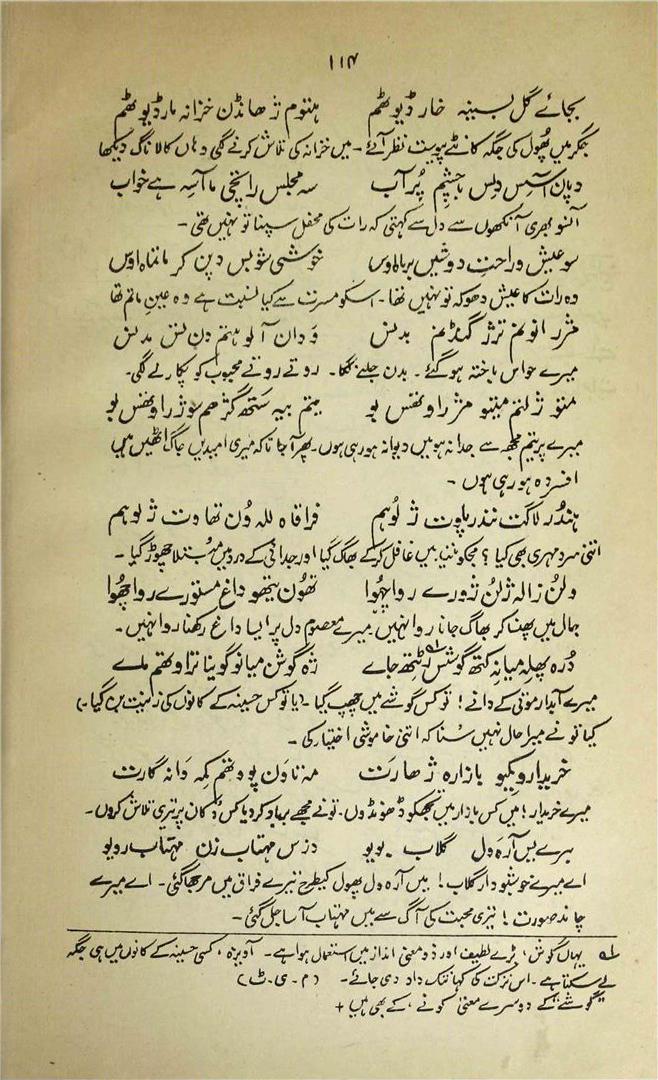 ۱۱۴
بجائے گل بسینہ خار ڈیوٹھم ہتوم ژھانڈن خزانہ مار ڈیوٹھم
جگر میں پھول کی جگہ کانٹے پیوست نظر آئے۔ میں خزانہ کی تلاش کرنے گئی وہاں کالا ناگ دیکھا
دپان آسس دلس باچشم پُر آب سہ مجلس راتچی ما آسہ ہے خواب
آنسو بھری آنکھوں سے دل سے کہتی کہ رات کی محفل سپنا تو نہیں تھی۔
سو عیش و راحت دوشیں خوشی شوبس دپن کر ماتماہ اوس
وہ رات کا عیش دھوکہ تو نہیں تھا۔ اسکو مسرت سے کیا نسبت ہے وہ عین ماتم تھا
بدنس وَدان آلو ہتم دِنِ
میرے حواس باختہ ہو گئے۔ بدن جلنے لگا۔ روتے روتے محبوب کو پکارنے لگی۔
متو ژلتم میتو مژراوتھس بو یتم بیہ گژھم
میرے پریتم مجھ سے جدا نہ ہو میں دیوانہ ہو رہی ہوں۔ پھر آجا تاکہ میری امیدیں جاگ اٹھیں میں
افسردہ ہو رہی ہوں۔
ہندُر لاگت نندر پاوِت ژ لوہم فراقاہ للہ وُن تھاوت ژ لوہم
اتنی سرد مہری بھی کیا؟ مجکو نیند میں غافل کر کے بھاگ گیا اور جدائی کے درد میں مبتلا چھوڑ گیا۔
ولُن زالہ ژلُن ژورے روا چھوا تھوُن یتھو داغ مستورے روا چھوا
جال میں پھنسا کر بھاگ جانا روا نہیں میرے معصوم دل پر ایسا داغ رکھنا روا نہیں۔
دُرہ پھلہ میانہ کتھ گوشس ژٹتھ جاے ژہ گوش میانو گویا نژاوتھم ملے
میرے آبدار موتی کے دانے! تو کس گوشے میں چھپ گیا۔ (یا تو کس حسینہ کے کانوں کی زینت بن گیا۔)
کیا تو نے میرا حال نہیں سنا کہ اتنی خاموشی اختیار کی۔
خریدارو کیو بازارہ ژھارت مہ ناوَن پوو تھم کمہ وَانہ گارت
میرے خریدار! میں کس بازار میں تجھکو ڈھونڈوں۔ تو نے مجھے برباد کر دیا کس دکان پر تیری تلاش کروں۔
ہرے بس آرہ ول گلاب بویو دزس مہتاب زن مہتاب رویو
اے میرے خوشبودار گلاب! میں آرہ ول پھول کیطرح تیرے فراق میں مرجھا گئی۔ اے میرے
چاند صورت! تیری محبت کی آگ سے میں مہتاب آسا جل گئی۔
۱؎ یہاں گوش، بڑے لطیف اور ذو معنی انداز میں استعمال ہوا ہے۔ آویزہ، کسی حسینہ کے کانوں میں ہی جگہ
لے سکتا ہے۔ اس نزاکت کی کہانتک داد دی جائے۔ (م۔ی۔ٹ)
گوشے کے دوسرے معنی کونے، کے بھی ہیں +